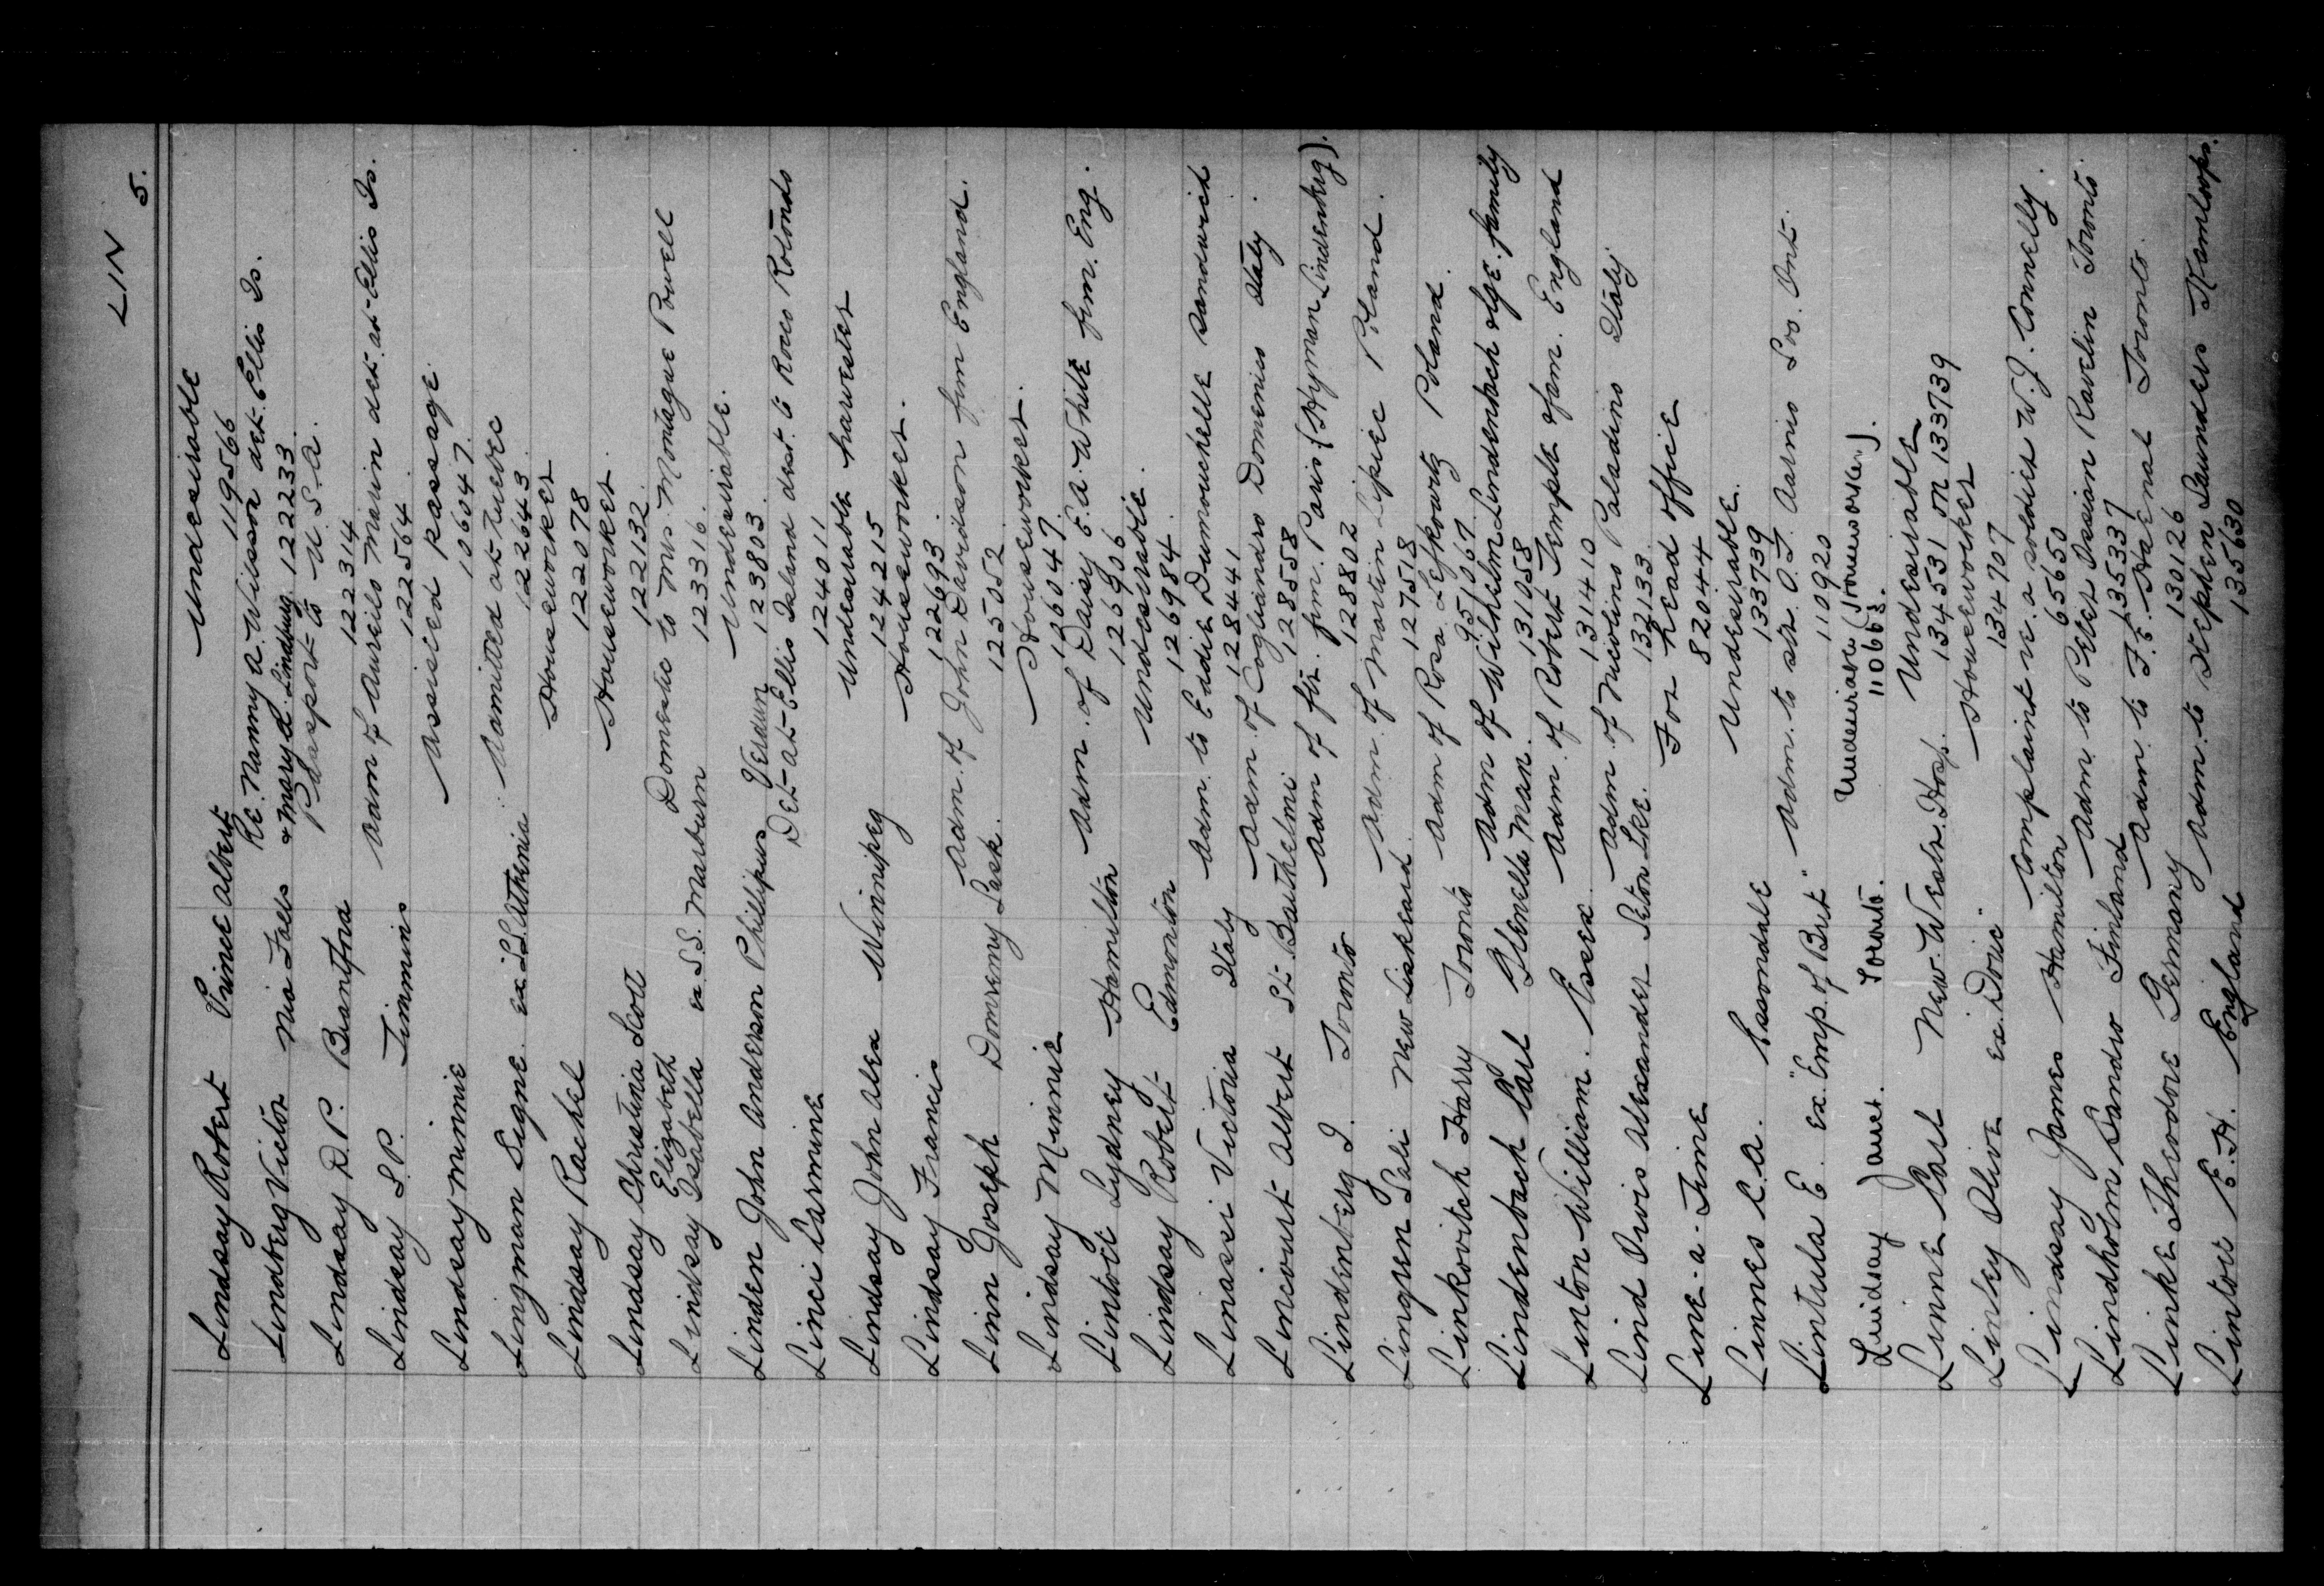 LIN 5.
Lindsay Robert Prince Albert Undesirable 119566
Lindberg Victor Nia Falls Re. Nanny A. Wilsson det. Ellis Is. & Mary A. Lindburg 122233
Lindsay D.P. Brantford Passport to U.S.A. 122314
Lindsay S.P. Timmins Adm of Aurelio Marin det. at Ellis Is. 122564
Lindsay Minnie Assisted passage 106047
Lingman Signe ex "S.S. Athenia" Admitted at Quebec 122643
Lindsay Rachel Houseworker 122078
Lindsay Christina Scott Houseworker 122132
Lindsay Elizabeth Isabella ex S.S. Marburn Domestic to Mrs. Montague Powell 123316
Linden John Anderson Phillipus Verdun Undesirable 123803
Linci Carmine Det at Ellis Island dest. to Rocco Rotondo 124011
Lindsay John Alex Winnipeg Undesirable harvester 124215
Lindsay Francis Houseworker 122693
Linn Joseph Domremy Sask. Adm. of John Davidson frm England. 125052
Lindsay Minnie Houseworker. 126047
Lintott Sydney Hamilton Adm. of Daisy E.A. White frm. Eng. 126906
Lindsay Robert Edmonton Undesirable. 126984
Linassi Victoria Italy Adm. to Eddie Dumouchelle Sandwich 128441
Lincourt Albert St. Barthelmi Adm. of Cogliandro Domenico Italy. 128558
Lindenberg I. Toronto Adm of frm. Paris (Hyman Lindenberg). 128802
Lingren Sali New Liskeard Adm. of Martin Lipiec Poland. 127518
Linkovitch Harry Toronto Adm of Rosa Lefkowitz Poland. 951067
Lindenbach Carl Glenella Man. Adm of Wilhelm Lindenbach & family 131058
Linton William. Essex Adm. of Robert Temple & fam. England 131410
Lind Orvis Alexander Seton Lke. Adm. of Nicolino Paladino Italy 132133
Line - a - Time For head office 82044
Linnes C.A. Essondale Undesirable. 133739
Lintula E. ex. "Emp. of Brit" Adm. to O.J. Aarnio Loo. Ont. 110920
Lindsay Janet. Toronto. Undesirable (Houseworker). 110668.
Linne Carl New. Westr. Hosp. Undesirable 134531 on 133739
Linley Olive ex. Doric Houseworker 134707
Lindsay James Hamilton Complaint re. a soldier W.J. Connelly. 65650
Lindholm Sandro Finland Adm. to Peter Ossian Ravelin Toronto. 135337
Linke Theodore Germany Adm. to F.E. Toronto. 130126
Lintott E.H. England Adm. to Stephen Saunders Kamloops. 135630